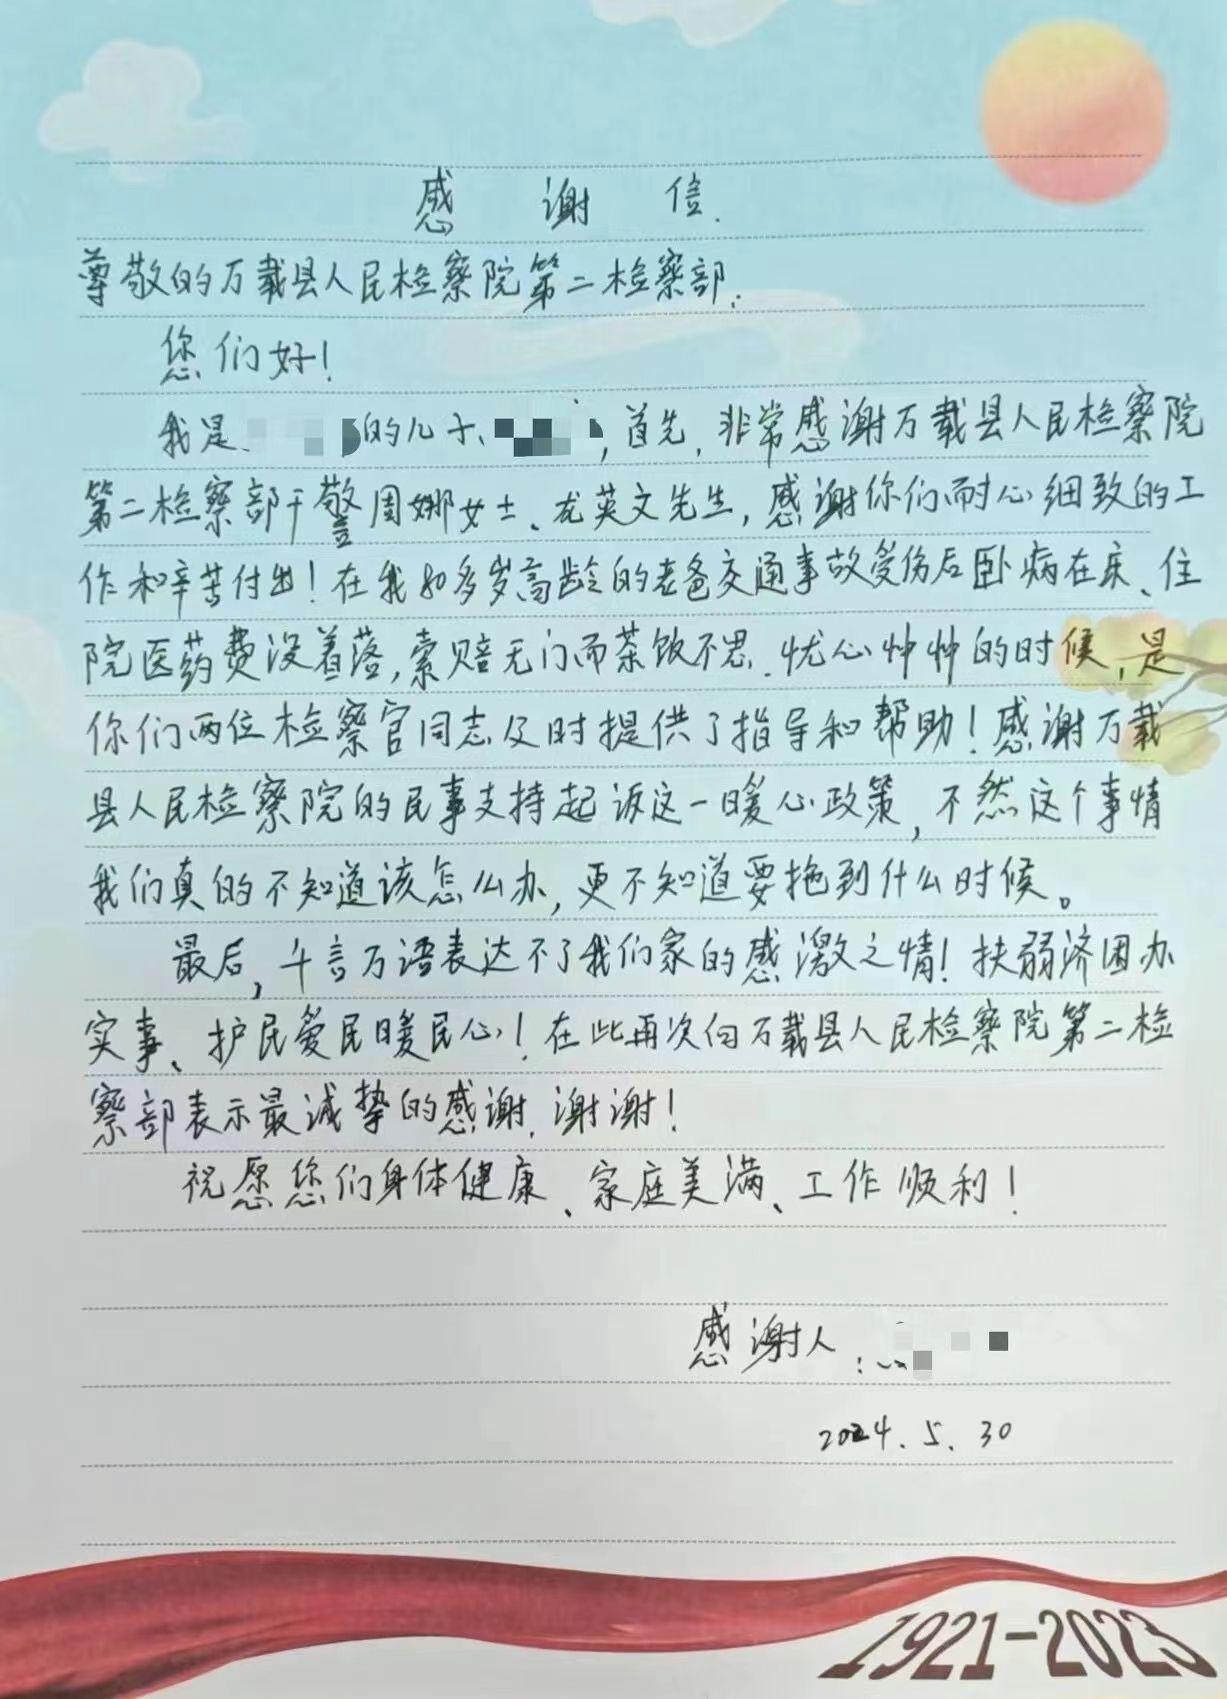 感谢信.
尊敬的万载县人民检察院第二检察部:
您们好!
我是 的儿子、 ,首先,非常感谢万载县人民检察院
第二检察部干警周娜女士、龙英文先生,感谢你们耐心细致的工
作和辛苦付出!在我80多岁高龄的老爸交通事故受伤后卧病在床、住
院医药费没着落,索赔无门而茶饭不思、忧心忡忡的时候,是
你们两位检察官同志及时提供了指导和帮助!感谢万载
县人民检察院的民事支持起诉这一暖心政策,不然这个事情
我们真的不知道该怎么办,更不知道要拖到什么时候。
最后,千言万语表达不了我们家的感激之情!扶弱济困办
实事、护民爱民暖民心!在此再次向万载县人民检察院第二检
察部表示最诚挚的感谢,谢谢!
祝愿您们身体健康、家庭美满、工作顺利!
感谢人:
2024.5.30
1921-2023